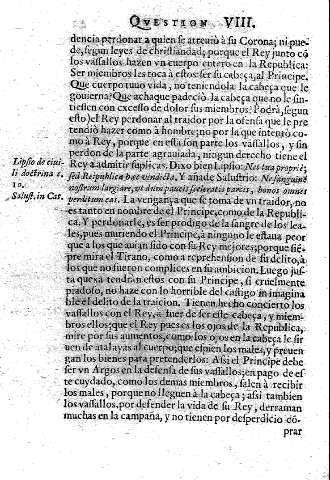 QVESTION VIII.
dencia perdonar a quien se atreuiò à su Corona; ni pue-
de, segun leyes de christiandad; porque el Rey junto cõ
los vassallos hazen vn cuerpo entero en la Republica:
Ser miembros les toca à estos; ser su cabeça, al Principe.
Que cuerpo tuuo vida, no teniendola la cabeça que le
gouierna? Que achaque padeciò la cabeça que no le sin-
tiessen con excesso de dolor sus miembros? Podrà, segun
esto, el Rey perdonar al traidor por la ofensa que le pre
tendiò hazer como à hombre; no por la que intentò co-
mo à Rey, porque en esta son parte los vassallos, y sin
perdon de la parte agrauiada, ningun derecho tiene el
Rey à admitir suplicas. Dixo bien Lipsio: Nec tua propriè,
sed Reipublicæ hæc vindicta. Y añade Salustrio: Ne sanguinẽ
nostrum largiare, vt dum paucis sceleratis parcis, bonos omnes
perditum eas. La vengança que se toma de vn traidor, no
es tanto en nombre de el Principe, como de la Republi-
ca. Y perdonarle, es ser prodigo de la sangre de los lea-
les, pues muriendo el Principe, à ninguno le estaua peor
que à los que auian sido con su Rey mejores; porque siẽ-
pre mira el Tirano, como a reprehension de su delito, à
los que no fueron complices en su ambicion. Luego jus-
ta quexa tendràn estos con su Principe, si cruelmente
piadoso, no haze con lo horrible del castigo in imagina
ble el delito de la traicion. Tienen hecho concierto los
vassallos con el Rey, à fuer de ser este cabeça, y miem-
bros ellos; que el Rey pues es los ojos de la Republica,
mire por sus aumentos, como los ojos en la cabeça le sir
uen de atalayas al cuerpo; que espien los males, y preuen
gan los bienes para pretenderlos: Assi el Principe debe
ser vn Argos en la defensa de sus vassallos; en pago de es-
te cuydado, como los demas miembros, salen à recibir
los males, porque no lleguen à la cabeça; assi tambien
los vassallos, por defender la vida de su Rey, derraman
muchas en la campaña, y no tienen por desperdicio cõ-
prar
Lipsio de ciui-
li doctrina c.
10.
Salust. in Cat.